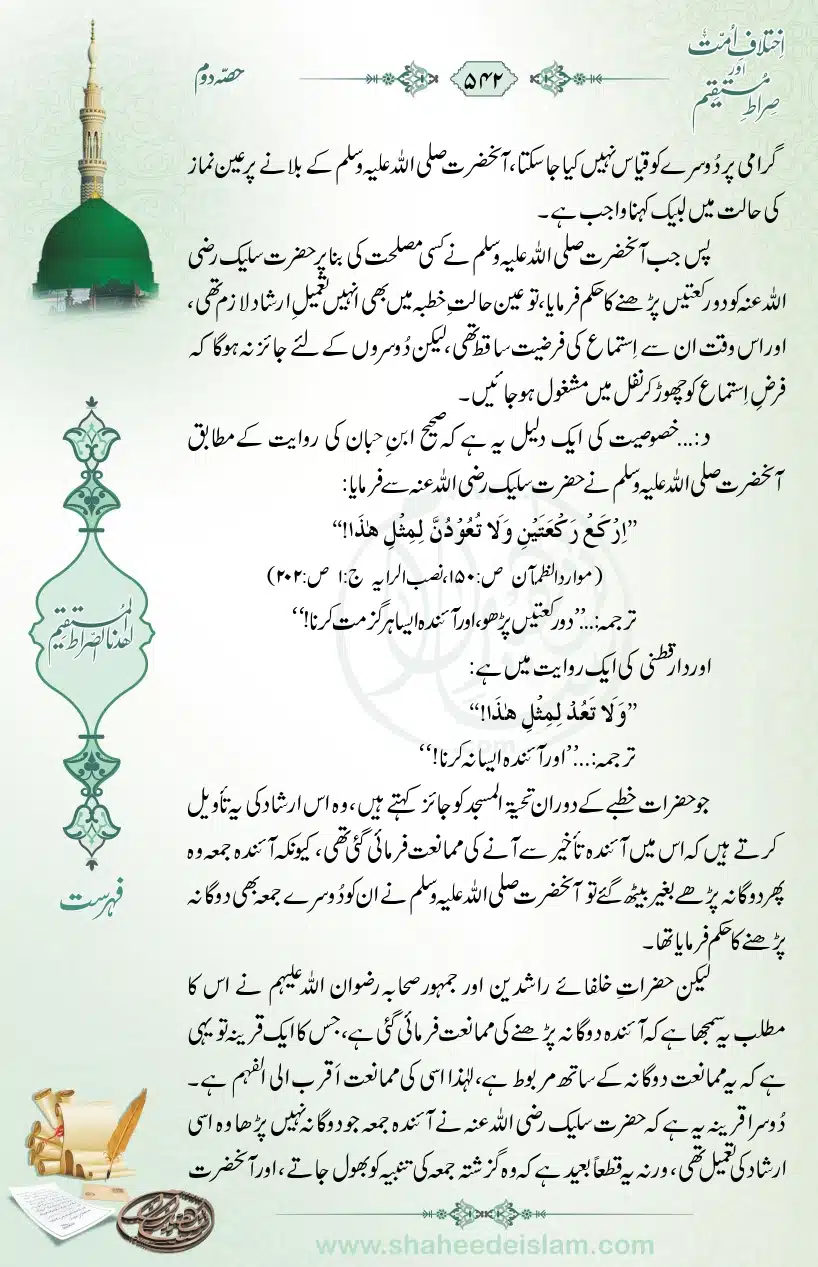 اِختلافِ اُمّت
اور
صراطِ مُستقیم
۵۴۲
حصّہ دوم
گرامی پر دُوسرے کو قیاس نہیں کیا جاسکتا، آنحضرت صلی اللہ علیہ وسلم کے بلانے پر عین نماز
کی حالت میں لبیک کہنا واجب ہے۔
پس جب آنحضرت صلی اللہ علیہ وسلم نے کسی مصلحت کی بنا پر حضرت سلیک رضی
اللہ عنہ کو دو رکعتیں پڑھنے کا حکم فرمایا، تو عین حالتِ خطبہ میں بھی انہیں تعمیلِ ارشاد لازم تھی،
اور اس وقت ان سے اِستماع کی فرضیت ساقط تھی، لیکن دُوسروں کے لئے جائز نہ ہوگا کہ
فرضِ اِستماع کو چھوڑ کر نفل میں مشغول ہوجائیں۔
د:...خصوصیت کی ایک دلیل یہ ہے کہ صحیح ابنِ حبان کی روایت کے مطابق
آنحضرت صلی اللہ علیہ وسلم نے حضرت سلیک رضی اللہ عنہ سے فرمایا:
”اِرْکَعْ رَکْعَتَیْنِ وَلَا تُعُوْدُنَّ لِمِثْلِ ھٰذَا!“
(موارد الظمآن ص:۱۵۰، نصب الرایہ ج:۱ ص:۲۰۲)
ترجمہ:...’’دو رکعتیں پڑھو، اور آئندہ ایسا ہرگز مت کرنا!‘‘
اور دارقطنی کی ایک روایت میں ہے:
”وَلَا تَعُدْ لِمِثْلِ ھٰذَا!“
ترجمہ:...’’اور آئندہ ایسا نہ کرنا!‘‘
جو حضرات خطبے کے دوران تحیۃ المسجد کو جائز کہتے ہیں، وہ اس ارشاد کی یہ تأویل
کرتے ہیں کہ اس میں آئندہ تأخیر سے آنے کی ممانعت فرمائی گئی تھی، کیونکہ آئندہ جمعہ وہ
پھر دوگانہ پڑھے بغیر بیٹھ گئے تو آنحضرت صلی اللہ علیہ وسلم نے ان کو دُوسرے جمعہ بھی دوگانہ
پڑھنے کا حکم فرمایا تھا۔
لیکن حضراتِ خلفائے راشدین اور جمہور صحابہ رضوان اللہ علیہم نے اس کا
مطلب یہ سمجھا ہے کہ آئندہ دوگانہ پڑھنے کی ممانعت فرمائی گئی ہے، جس کا ایک قرینہ تو یہی
ہے کہ یہ ممانعت دوگانہ کے ساتھ مربوط ہے، لہٰذا اسی کی ممانعت اَقرب الی الفہم ہے۔
دُوسرا قرینہ یہ ہے کہ حضرت سلیک رضی اللہ عنہ نے آئندہ جمعہ جو دوگانہ نہیں پڑھا وہ اسی
ارشاد کی تعمیل تھی، ورنہ یہ قطعاً بعید ہے کہ وہ گزشتہ جمعہ کی تنبیہ کو بھول جاتے، اور آنحضرت
اھدنا الصّراط المُستقیم
فہرست
www.shaheedeislam.com